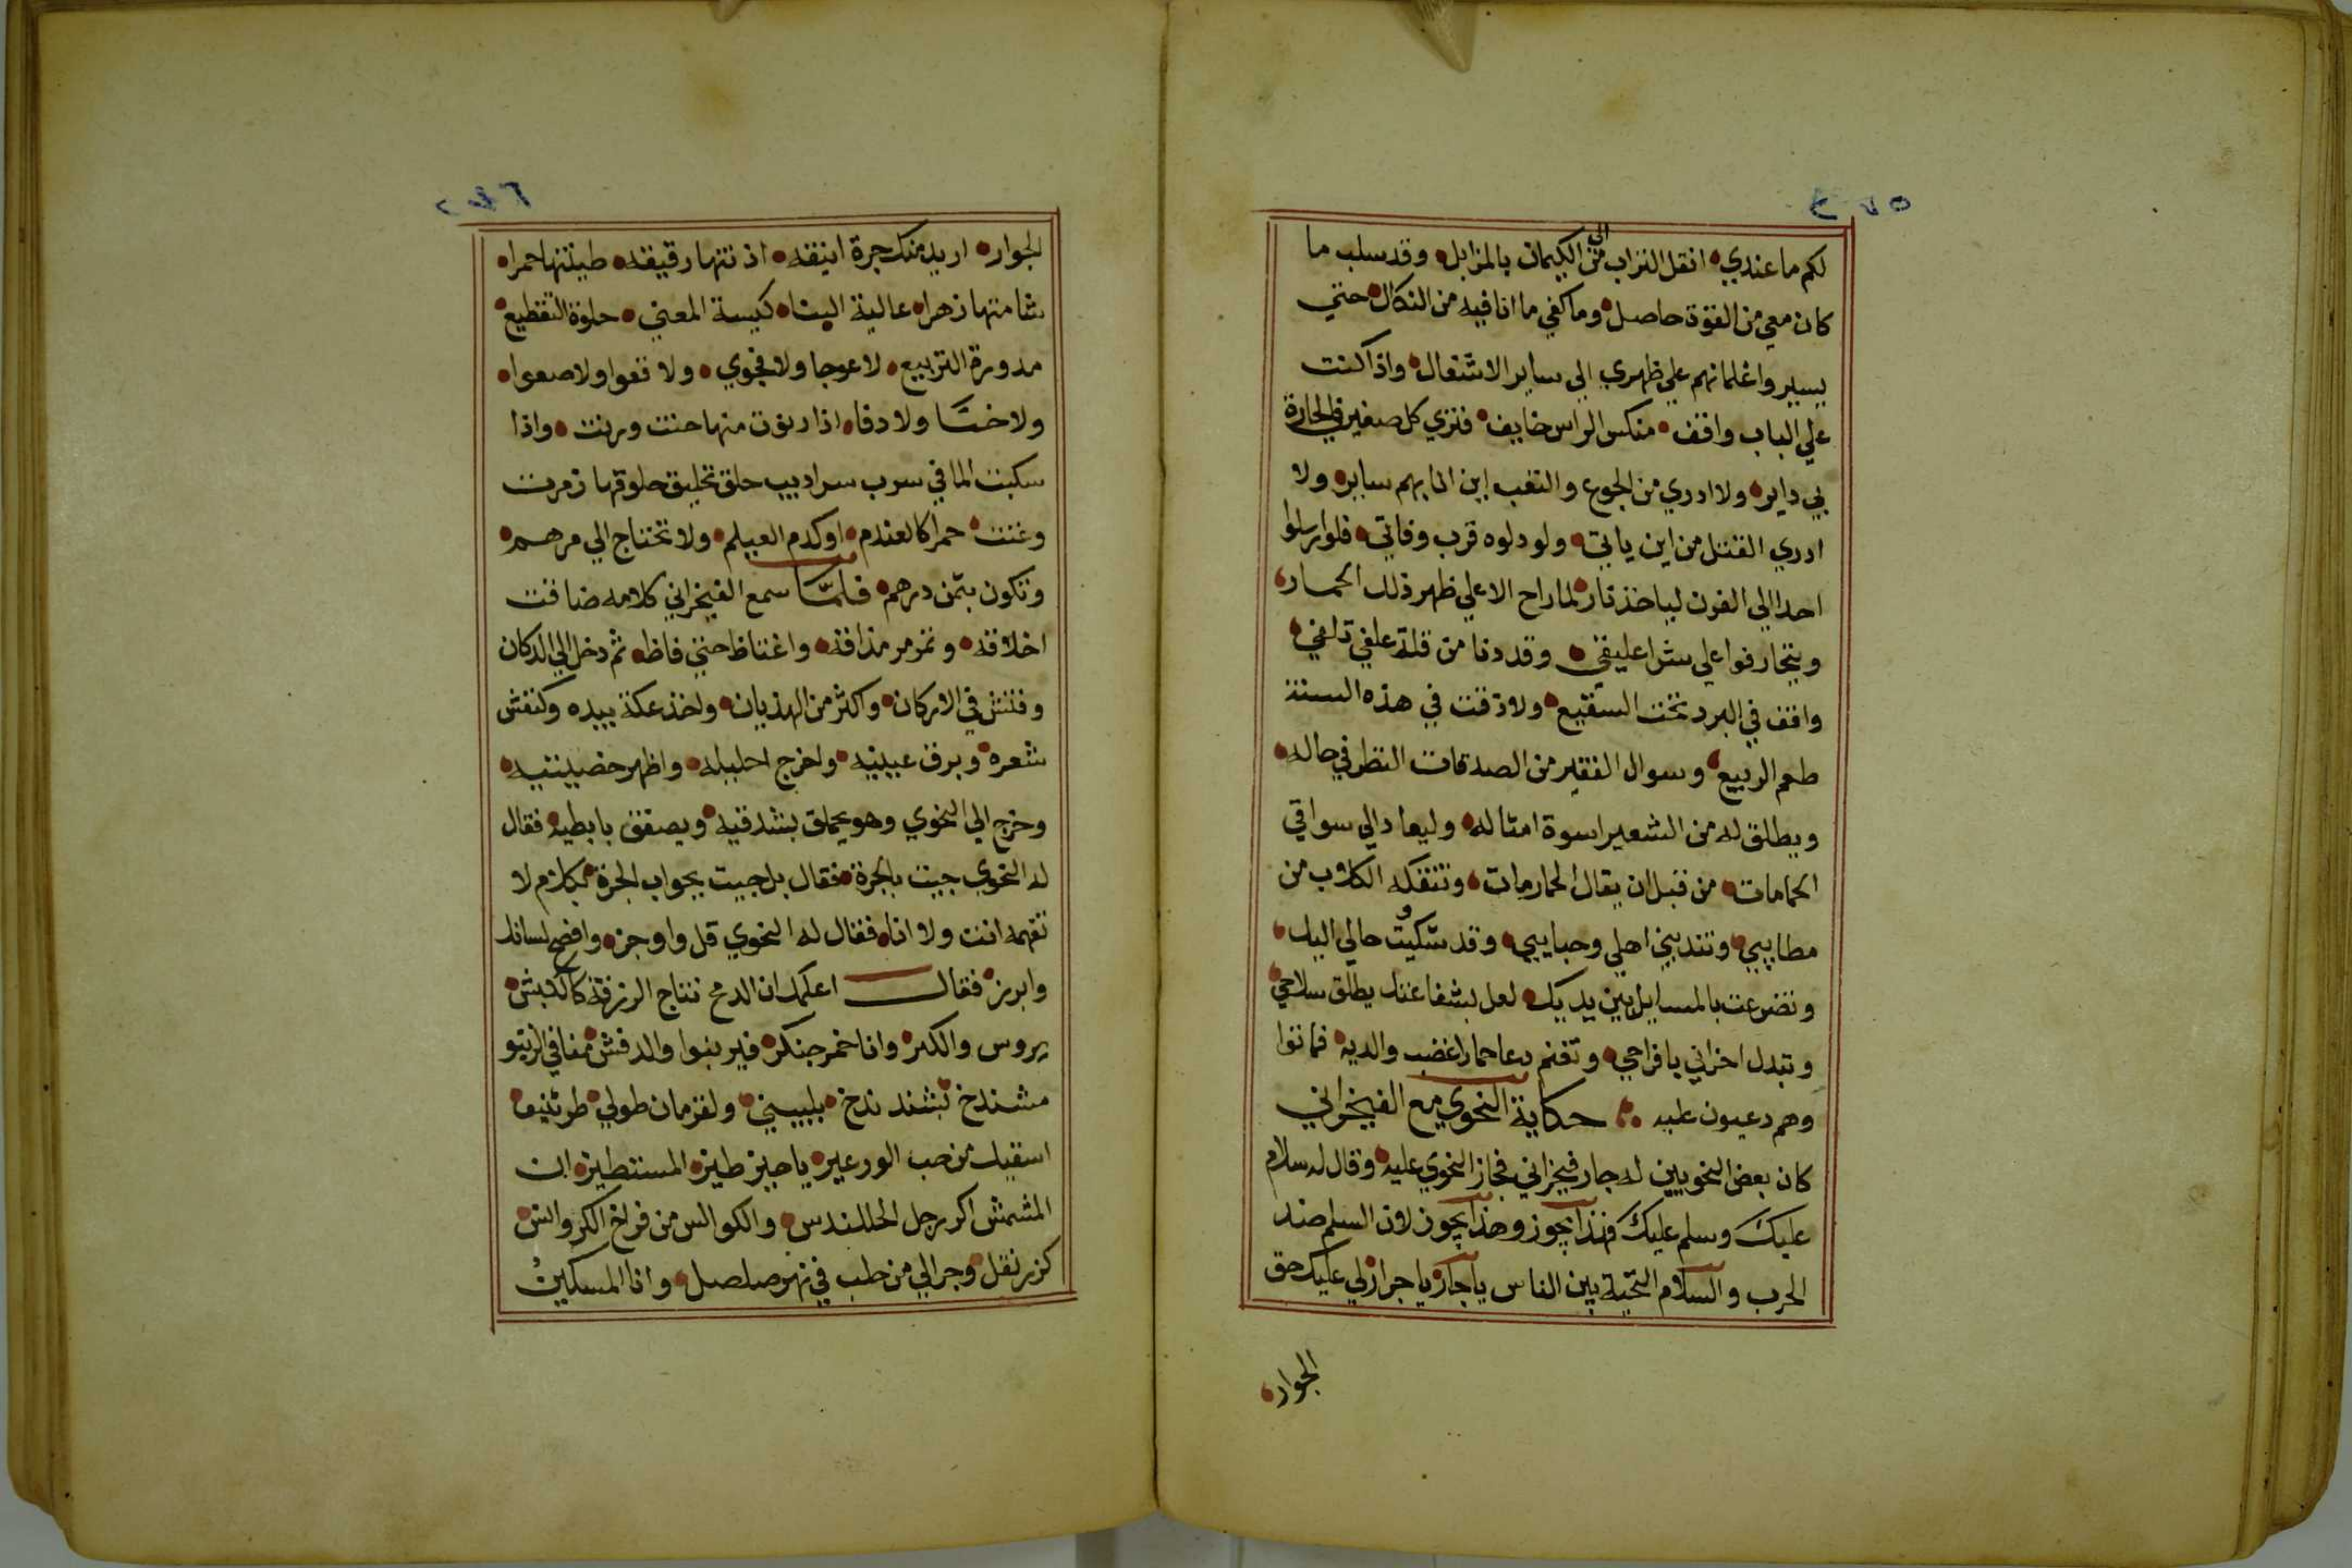 لكم ما عندي انقل التراب من الى الكيمان بالمزابل وقد سلب ما
كان معي من القوة حاصل وما كفي ما انا فيه من النكال حتي
يسيروا غلمانهم علي ظهري الي ساير الاشغال واذا كنت
علي الباب واقف منكس الراس خايف فتري كل صغير في الحارة
بي داير ولا ادري من الجوع والتعب اين انا بهم ساير ولا
ادري القتل من اين ياتي ولو دلوه قرب وفاتي فلو ارسلوا
احدا الي الفرن لياخذ نار لما راح الا علي ظهر ذلك الحمار
ويتجارفوا علي شرا عليقي وقد دنا من قلة علفي تلفي
واقف في البرد تحت السقيع ولا ذقت في هذه السنة
طعم الربيع وسوال الفقير من الصدقات النظر في حاله
ويطلق له من الشعير اسوة امثاله وليعاد الي سواقي
الحمامات من قبل ان يقال الحمار مات وتتفكه الكلاب من
مطايبي وتندبني اهلي وحبايبي وقد شكيت حالي اليك
وتضرعت بالمسايل بين يديك لعل بشفاعتك يطلق سلاحي
وتبدل احزاني بافراحي وتغنم دعا حمار اغضب والديه فماتوا
وهم دعيون عليه حكاية النحوي مع الفيخراني
كان بعض النحويين له جار فيخراني فجاز النحوي عليه وقال له سلام
عليك وسلم عليك فهذا يجوز وهذا يجوز لان السلم ضد
الحرب والسلام التحية بين الناس يا جار يا جرار لي عليك حق
الجوار
الجوار اريد منك جرة انيقه اذنتها رقيقه طينتها حمرا
شامتها زهرا عالية البنا كيسة المعني حلوة التقطيع
مدورة التربيع لا عوجا ولا فجوي ولا قعوا ولا صعوا
ولا خشا ولا دفا اذا دنوت منها حنت ورنت واذا
سكبت الما في سرب سراديب حلق تخليق حلوقها زمرت
وغنت حمرا كالعندم او كدم العيلم ولا تحتاج الي مرهم
وتكون بثمن درهم فلما سمع الفيخراني كلامه ضاقت
اخلاقه وتمرمر مذاقه واغتاظ حتي فاظ ثم دخل الي الدكان
وفتش في الاركان واكثر من الهذيان واخذ عكة بيده وكنفش
شعره وبرق عينيه واخرج احليله واظهر خصيتيه
وخرج الي النحوي وهو يحملق بشدقيه ويصفق بابطيه فقال
له النحوي جيت بالجرة فقال بل جيت بجواب الجرة بكلام لا
تفهمه انت ولا انا فقال له النحوي قل واوجز وافصح لسانك
وابرز فقال اعلمك ان الدمح نتاج الرزقة كالدبش
يروس والكبر وانا خمر جنكر فير بنوا والدفش مفافي الزيتو
مشندخ تبشند ندخ بلبيسني ولفزمان طولي طرثنيفا
اسقيك من حب الورعير يا حيز طيز المستطيزة ابن
المشمش اكر رجل الحللندس والكوالس من فراخ الكروالش
كزبر نقل وجرالي من حلب في نهر صلصل وانا المسكين